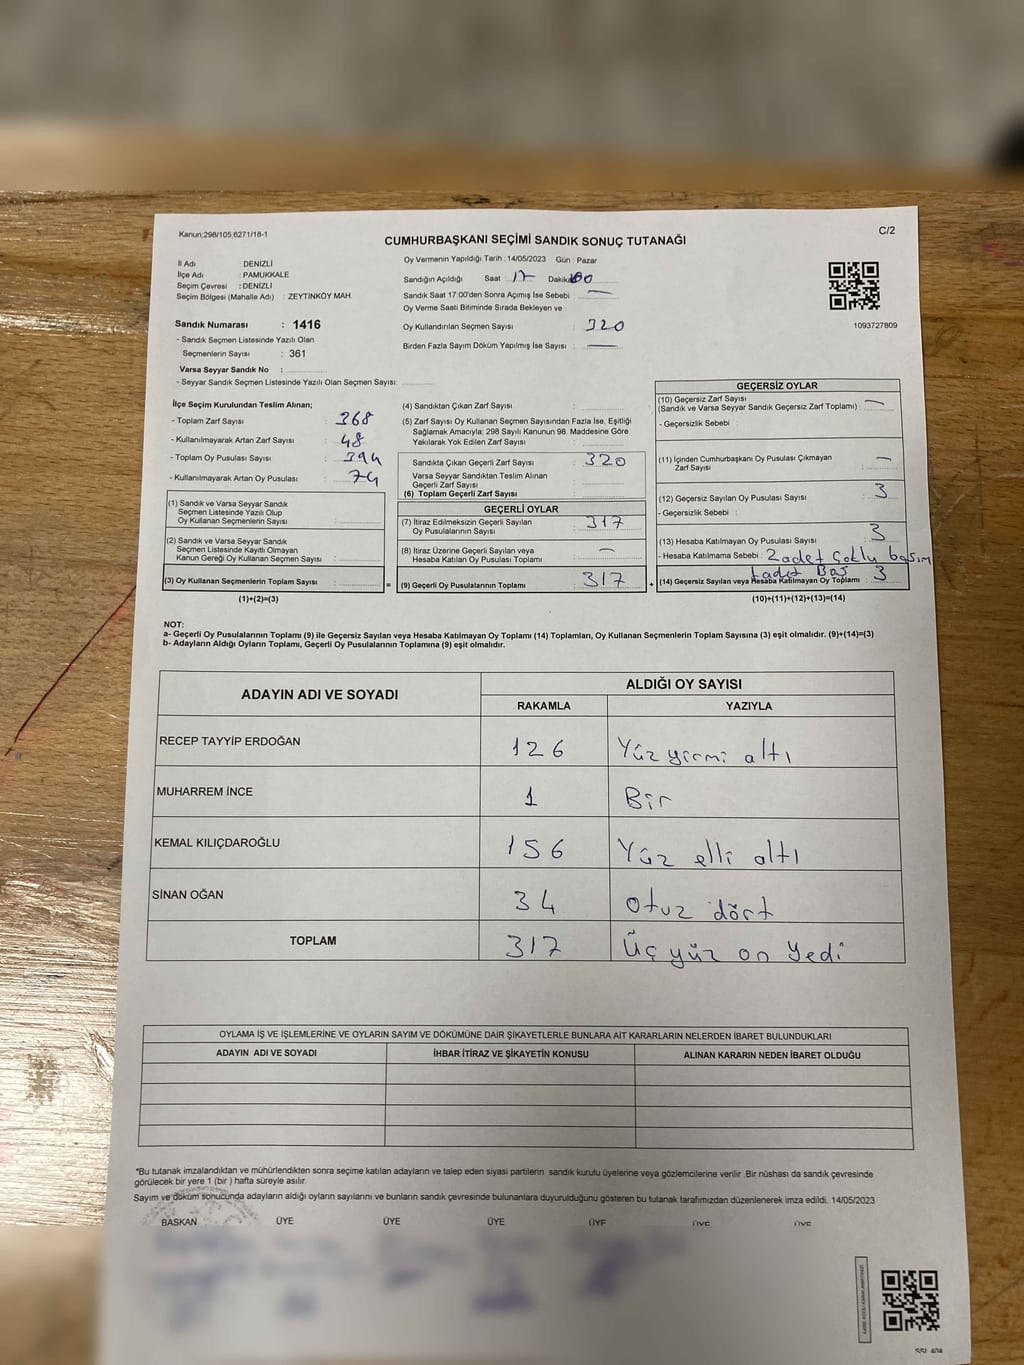 Kanun;298/105;6271/18-1
C/2
CUMHURBAŞKANI SEÇİMİ SANDIK SONUÇ TUTANAĞI
İl Adı : DENİZLİ
İlçe Adı : PAMUKKALE
Seçim Çevresi : DENİZLİ
Seçim Bölgesi (Mahalle Adı) : ZEYTİNKÖY MAH.
Sandık Numarası : 1416
- Sandık Seçmen Listesinde Yazılı Olan
Seçmenlerin Sayısı : 361
Varsa Seyyar Sandık No :
- Seyyar Sandık Seçmen Listesinde Yazılı Olan Seçmen Sayısı:
Oy Vermenin Yapıldığı Tarih : 14/05/2023 Gün : Pazar
Sandığın Açıldığı Saat 17 Dakika
Sandık Saat 17:00'den Sonra Açımış İse Sebebi : —
Oy Verme Saati Bitiminde Sırada Bekleyen ve
Oy Kullandırılan Seçmen Sayısı : 320
Birden Fazla Sayım Döküm Yapılmış İse Sayısı : —
1093727809
İlçe Seçim Kurulundan Teslim Alınan;
- Toplam Zarf Sayısı : 368
- Kullanılmayarak Artan Zarf Sayısı : 48
- Toplam Oy Pusulası Sayısı : 394
- Kullanılmayarak Artan Oy Pusulası : 74
(1) Sandık ve Varsa Seyyar Sandık
Seçmen Listesinde Yazılı Olup
Oy Kullanan Seçmenlerin Sayısı :
(2) Sandık ve Varsa Seyyar Sandık
Seçmen Listesinde Kayıtlı Olmayan
Kanun Gereği Oy Kullanan Seçmen Sayısı :
(3) Oy Kullanan Seçmenlerin Toplam Sayısı : =
(1)+(2)=(3)
(4) Sandıktan Çıkan Zarf Sayısı :
(5) Zarf Sayısı Oy Kullanan Seçmen Sayısından Fazla İse, Eşitliği
Sağlamak Amacıyla; 298 Sayılı Kanunun 98. Maddesine Göre
Yakılarak Yok Edilen Zarf Sayısı :
Sandıkta Çıkan Geçerli Zarf Sayısı : 320
Varsa Seyyar Sandıktan Teslim Alınan
Geçerli Zarf Sayısı :
(6) Toplam Geçerli Zarf Sayısı :
GEÇERLİ OYLAR
(7) İtiraz Edilmeksizin Geçerli Sayılan
Oy Pusulalarının Sayısı : 317
(8) İtiraz Üzerine Geçerli Sayılan veya
Hesaba Katılan Oy Pusulası Toplamı : —
(9) Geçerli Oy Pusulalarının Toplamı : 317 +
GEÇERSİZ OYLAR
(10) Geçersiz Zarf Sayısı
(Sandık ve Varsa Seyyar Sandık Geçersiz Zarf Toplamı) : —
- Geçersizlik Sebebi :
(11) İçinden Cumhurbaşkanı Oy Pusulası Çıkmayan
Zarf Sayısı : —
(12) Geçersiz Sayılan Oy Pusulası Sayısı : 3
- Geçersizlik Sebebi :
(13) Hesaba Katılmayan Oy Pusulası Sayısı : 3
- Hesaba Katılmama Sebebi : 2 adet Çoklu basım
1 adet Boş
(14) Geçersiz Sayılan veya Hesaba Katılmayan Oy Toplamı : 3
(10)+(11)+(12)+(13)=(14)
NOT:
a- Geçerli Oy Pusulalarının Toplamı (9) ile Geçersiz Sayılan veya Hesaba Katılmayan Oy Toplamı (14) Toplamları, Oy Kullanan Seçmenlerin Toplam Sayısına (3) eşit olmalıdır. (9)+(14)=(3)
b- Adayların Aldığı Oyların Toplamı, Geçerli Oy Pusulalarının Toplamına (9) eşit olmalıdır.
ADAYIN ADI VE SOYADI
ALDIĞI OY SAYISI
RAKAMLA YAZIYLA
RECEP TAYYİP ERDOĞAN 126 Yüz yirmi altı
MUHARREM İNCE 1 Bir
KEMAL KILIÇDAROĞLU 156 Yüz elli altı
SİNAN OĞAN 34 Otuz dört
TOPLAM 317 Üç yüz on yedi
OYLAMA İŞ VE İŞLEMLERİNE VE OYLARIN SAYIM VE DÖKÜMÜNE DAİR ŞİKAYETLERLE BUNLARA AİT KARARLARIN NELERDEN İBARET BULUNDUKLARI
ADAYIN ADI VE SOYADI İHBAR İTİRAZ VE ŞİKAYETİN KONUSU ALINAN KARARIN NEDEN İBARET OLDUĞU
*Bu tutanak imzalandıktan ve mühürlendikten sonra seçime katılan adayların ve talep eden siyasi partilerin sandık kurulu üyelerine veya gözlemcilerine verilir .Bir nüshası da sandık çevresinde
görülecek bir yere 1 (bir ) hafta süreyle asılır.
Sayım ve döküm sonucunda adayların aldığı oyların sayılarını ve bunların sandık çevresinde bulunanlara duyurulduğunu gösteren bu tutanak tarafımızdan düzenlenerek imza edildi. 14/05/2023
BAŞKAN ÜYE ÜYE ÜYE ÜYE ÜYE ÜYE